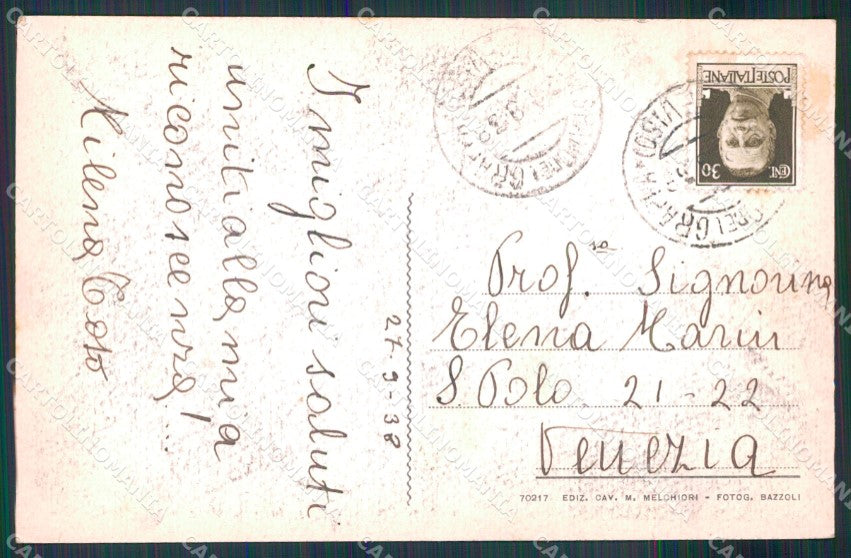 I migliori saluti
uniti alla mia
riconoscenza!...
Milena Coto
27-9-38
Prof.ssa Signorina
Elena Marin
S. Polo 21-22
Venezia
70217 EDIZ. CAV. M. MELCHIORI - FOTOG. BAZZOLI
POSTE ITALIANE
CENT. 30
CARTOLINOMANIA